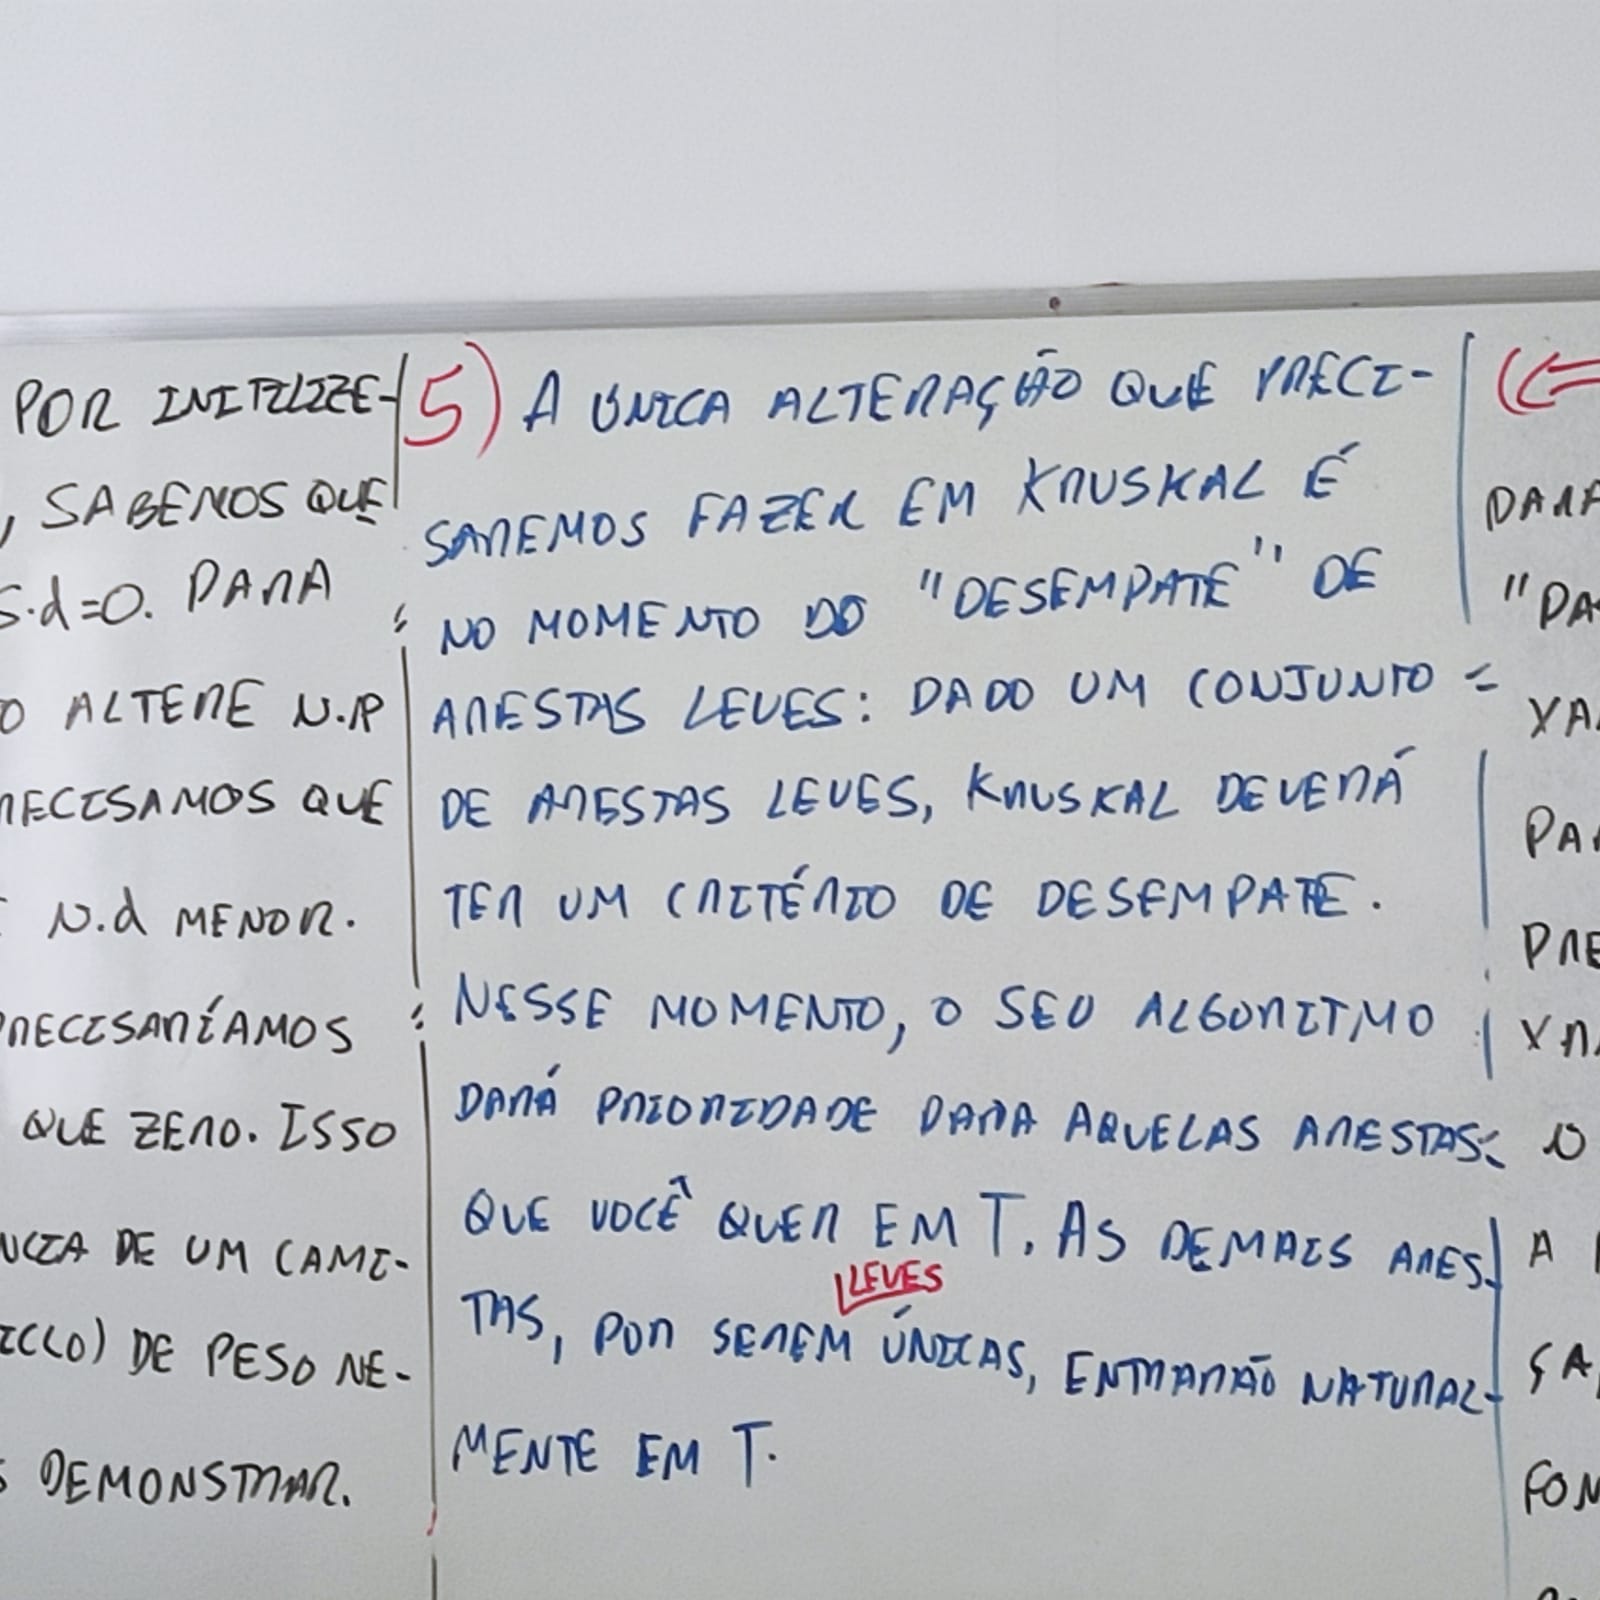 POR INITILIZE-
, SABEMOS QUE
S.d=0. PARA
O ALTERE N.P
RECISAMOS QUE
N.d MENOR.
PRECISARÍAMOS
QUE ZERO. ISSO
NCIA DE UM CAMI-
ICLO) DE PESO NE-
S DEMONSTRAR.
5) A ÚNICA ALTERAÇÃO QUE PRECI-
SAREMOS FAZER EM KRUSKAL É
NO MOMENTO DO "DESEMPATE" DE
ARESTAS LEVES: DADO UM CONJUNTO
DE ARESTAS LEVES, KRUSKAL DEVERÁ
TER UM CRITÉRIO DE DESEMPATE.
NESSE MOMENTO, O SEU ALGORITMO
DARÁ PRIORIDADE PARA AQUELAS ARESTAS
QUE VOCÊ QUER EM T. AS DEMAIS ARES-
TAS, POR SEREM LEVES ÚNICAS, ENTRARÃO NATURAL-
MENTE EM T.
(⇐
PARA
"PA
PAR
PRE
O
A
ÇA